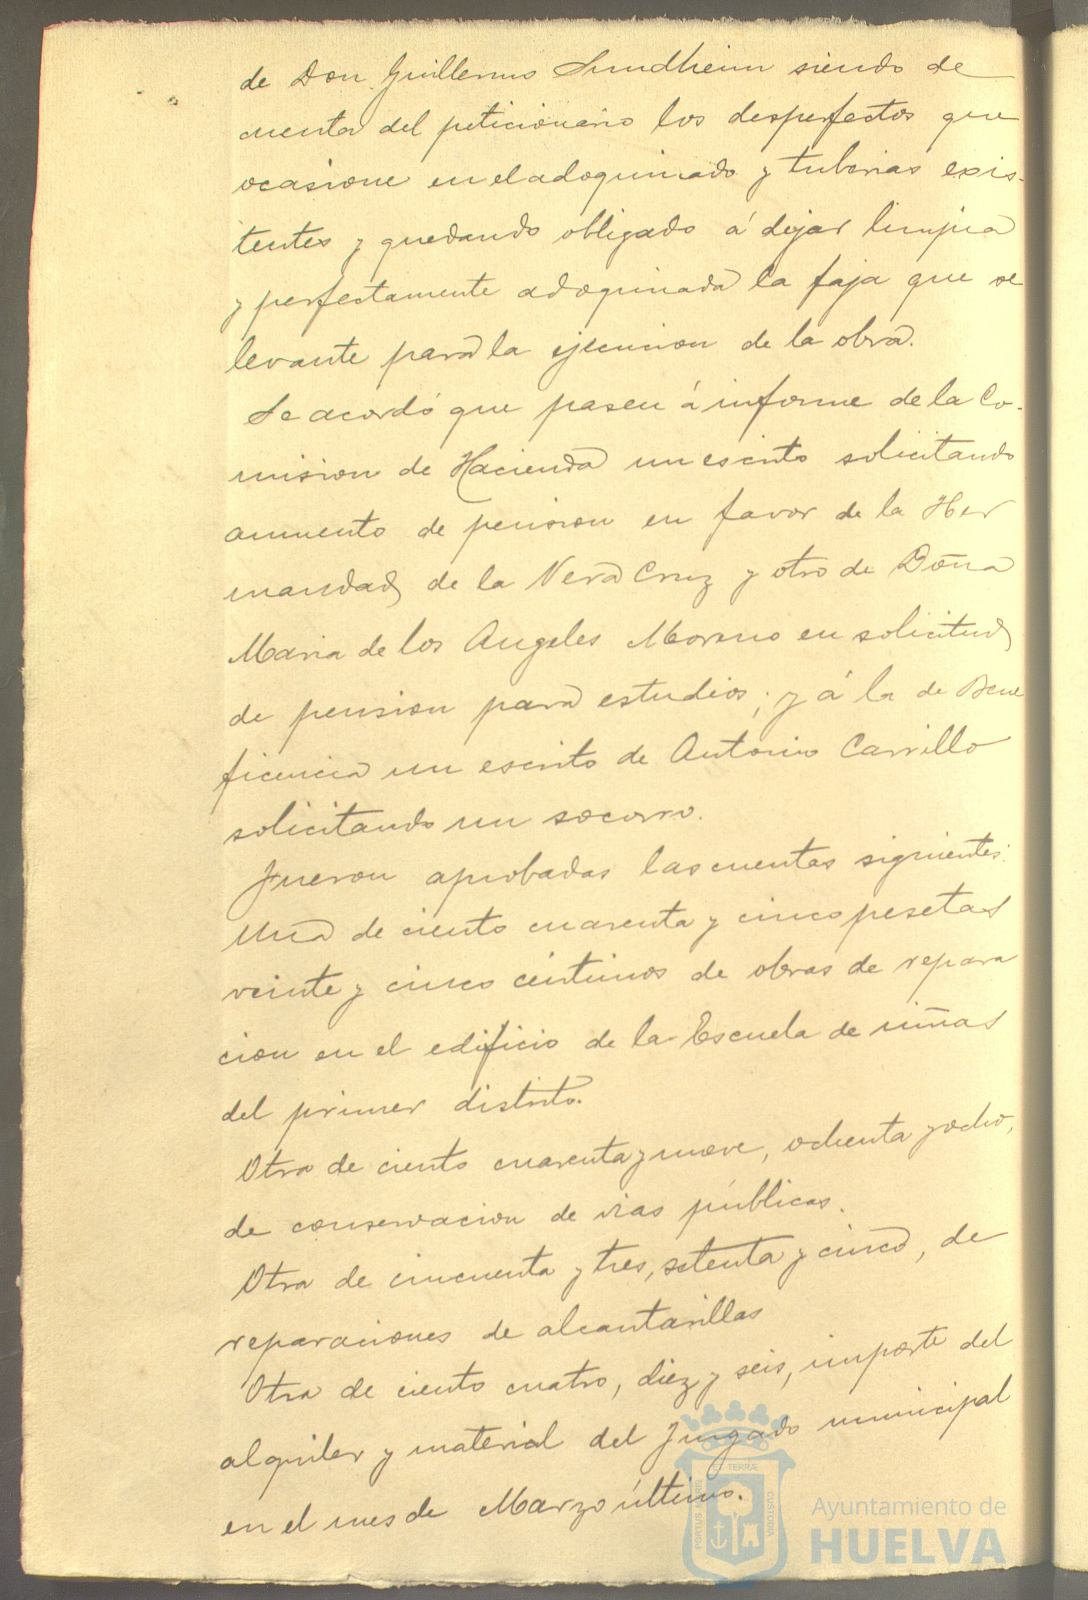 de Don Guillermo Sundheim siendo de
cuenta del peticionario los desperfectos que
ocasione en el adoquinado y tuberias exis-
tentes y quedando obligado á dejar limpia
y perfectamente adoquinada la faja que se
levante para la ejecucion de la obra.
Se acordó que pasen á informe de la Co-
mision de Hacienda un escrito solicitando
aumento de pension en favor de la Her
mandad de la Vera Cruz y otro de Doña
Maria de los Angeles Moreno en solicitud
de pension para estudios; y á la de Bene
ficencia un escrito de Antonio Carrillo
solicitando un socorro.
Fueron aprobadas las cuentas siguientes:
Una de ciento cuarenta y cinco pesetas
veinte y cinco céntimos de obras de repara
cion en el edificio de la Escuela de niñas
del primer distrito.
Otra de ciento cuarenta y nueve, ochenta y ocho,
de conservacion de vias públicas.
Otra de cincuenta y tres, setenta y cinco, de
reparaciones de alcantarillas
Otra de ciento cuatro, diez y seis, importe del
alquiler y material del Juzgado municipal
en el mes de Marzo último.
PORTUS MARIS ET TERRÆ CUSTODIA
Ayuntamiento de
HUELVA